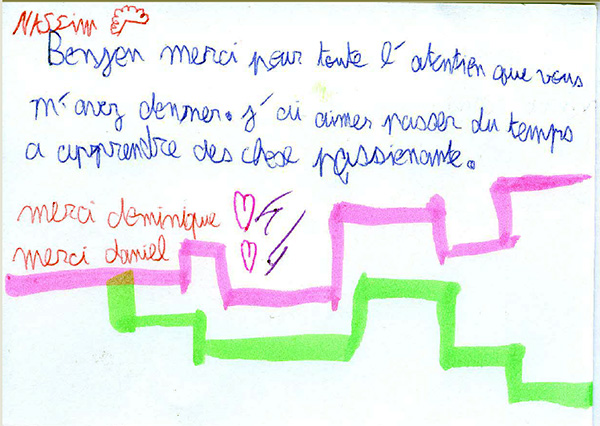 NASSim
Bonjon merci pour toute l'atention que vous
m'avez donner. j'ai aimer passer du temps
a apprendre des chose passionante.
merci dominique
merci daniel